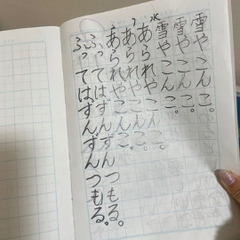 雪やこんこ。
雪やこんこ。
あられやこんこ。
あられやこんこ。
あられやこんこ。
ふってはずんずんつもる。
ふってはずんずんつもる。